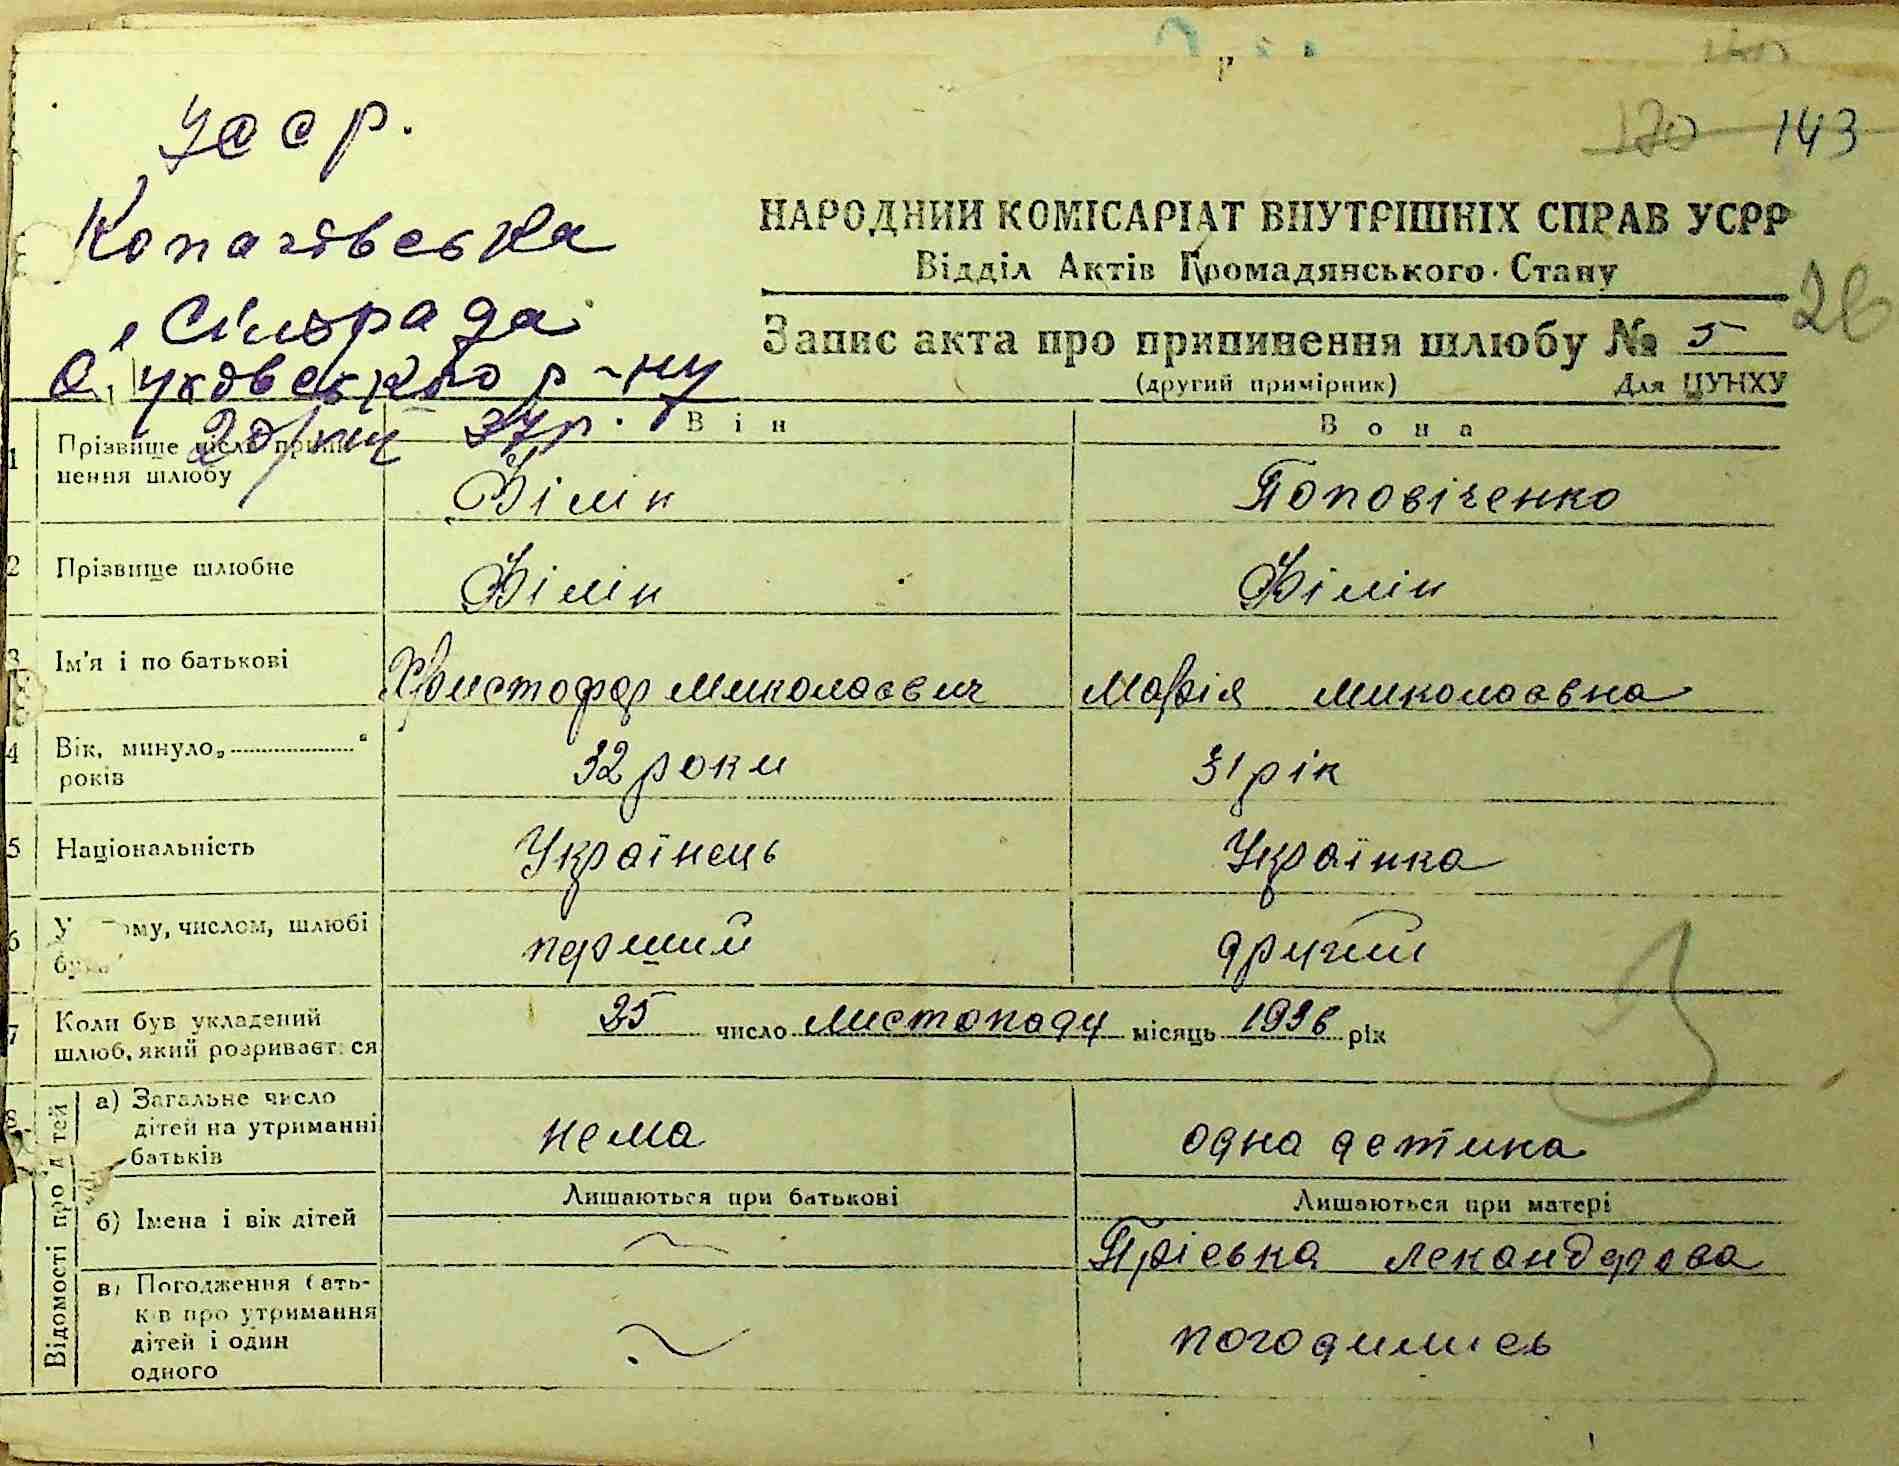 УССР.
170 143
Копачівська
Сільрада
Обуховського р-ну
20/VIII 37 р.
НАРОДНИЙ КОМІСАРІАТ ВНУТРІШНІХ СПРАВ УСРР
Відділ Актів Громадянського Стану
26
Запис акта про припинення шлюбу № 5
(другий примірник) Для ЦУНХУ
Він Вона
1 Прізвище після припинення шлюбу
Білик Поповіченко
2 Прізвище шлюбне Білик Білік
3 Ім'я і по батькові Христофор Миколаєвич Марія Миколаєвна
4 Вік, минуло „ “
років 32 роки 31 рік
5 Національність Українець Українка
6 числом, шлюбі
перший другий
7 Коли був укладений
шлюб, який розривається 25 число листопаду місяць 1936 рік
8 Відомості про дітей
а) Загальне число
дітей на утриманні
батьків нема одна детина
Лишаються при батькові Лишаються при матері
б) Імена і вік дітей Пріська
в) Погодження бать-
ків про утримання
дітей і один
одного погодились
3